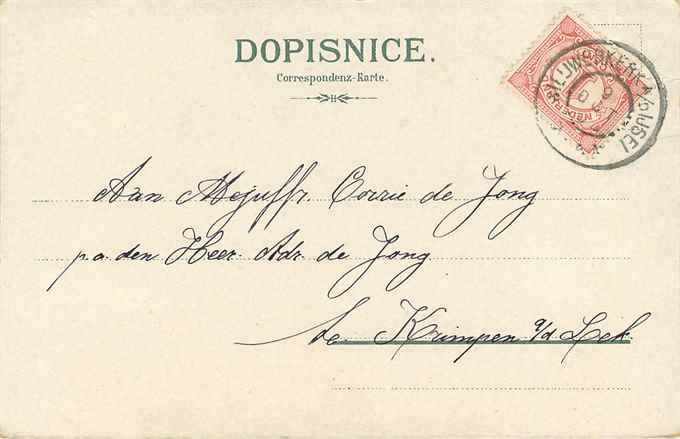 DOPISNICE.
Correspondenz-Karte.
Aan Mejuffr. Corrie de Jong
p.a. den Heer Adr. de Jong
te Krimpen a/d Lek.
NIEUWERKERK A/D IJSEL
NEDERLAND